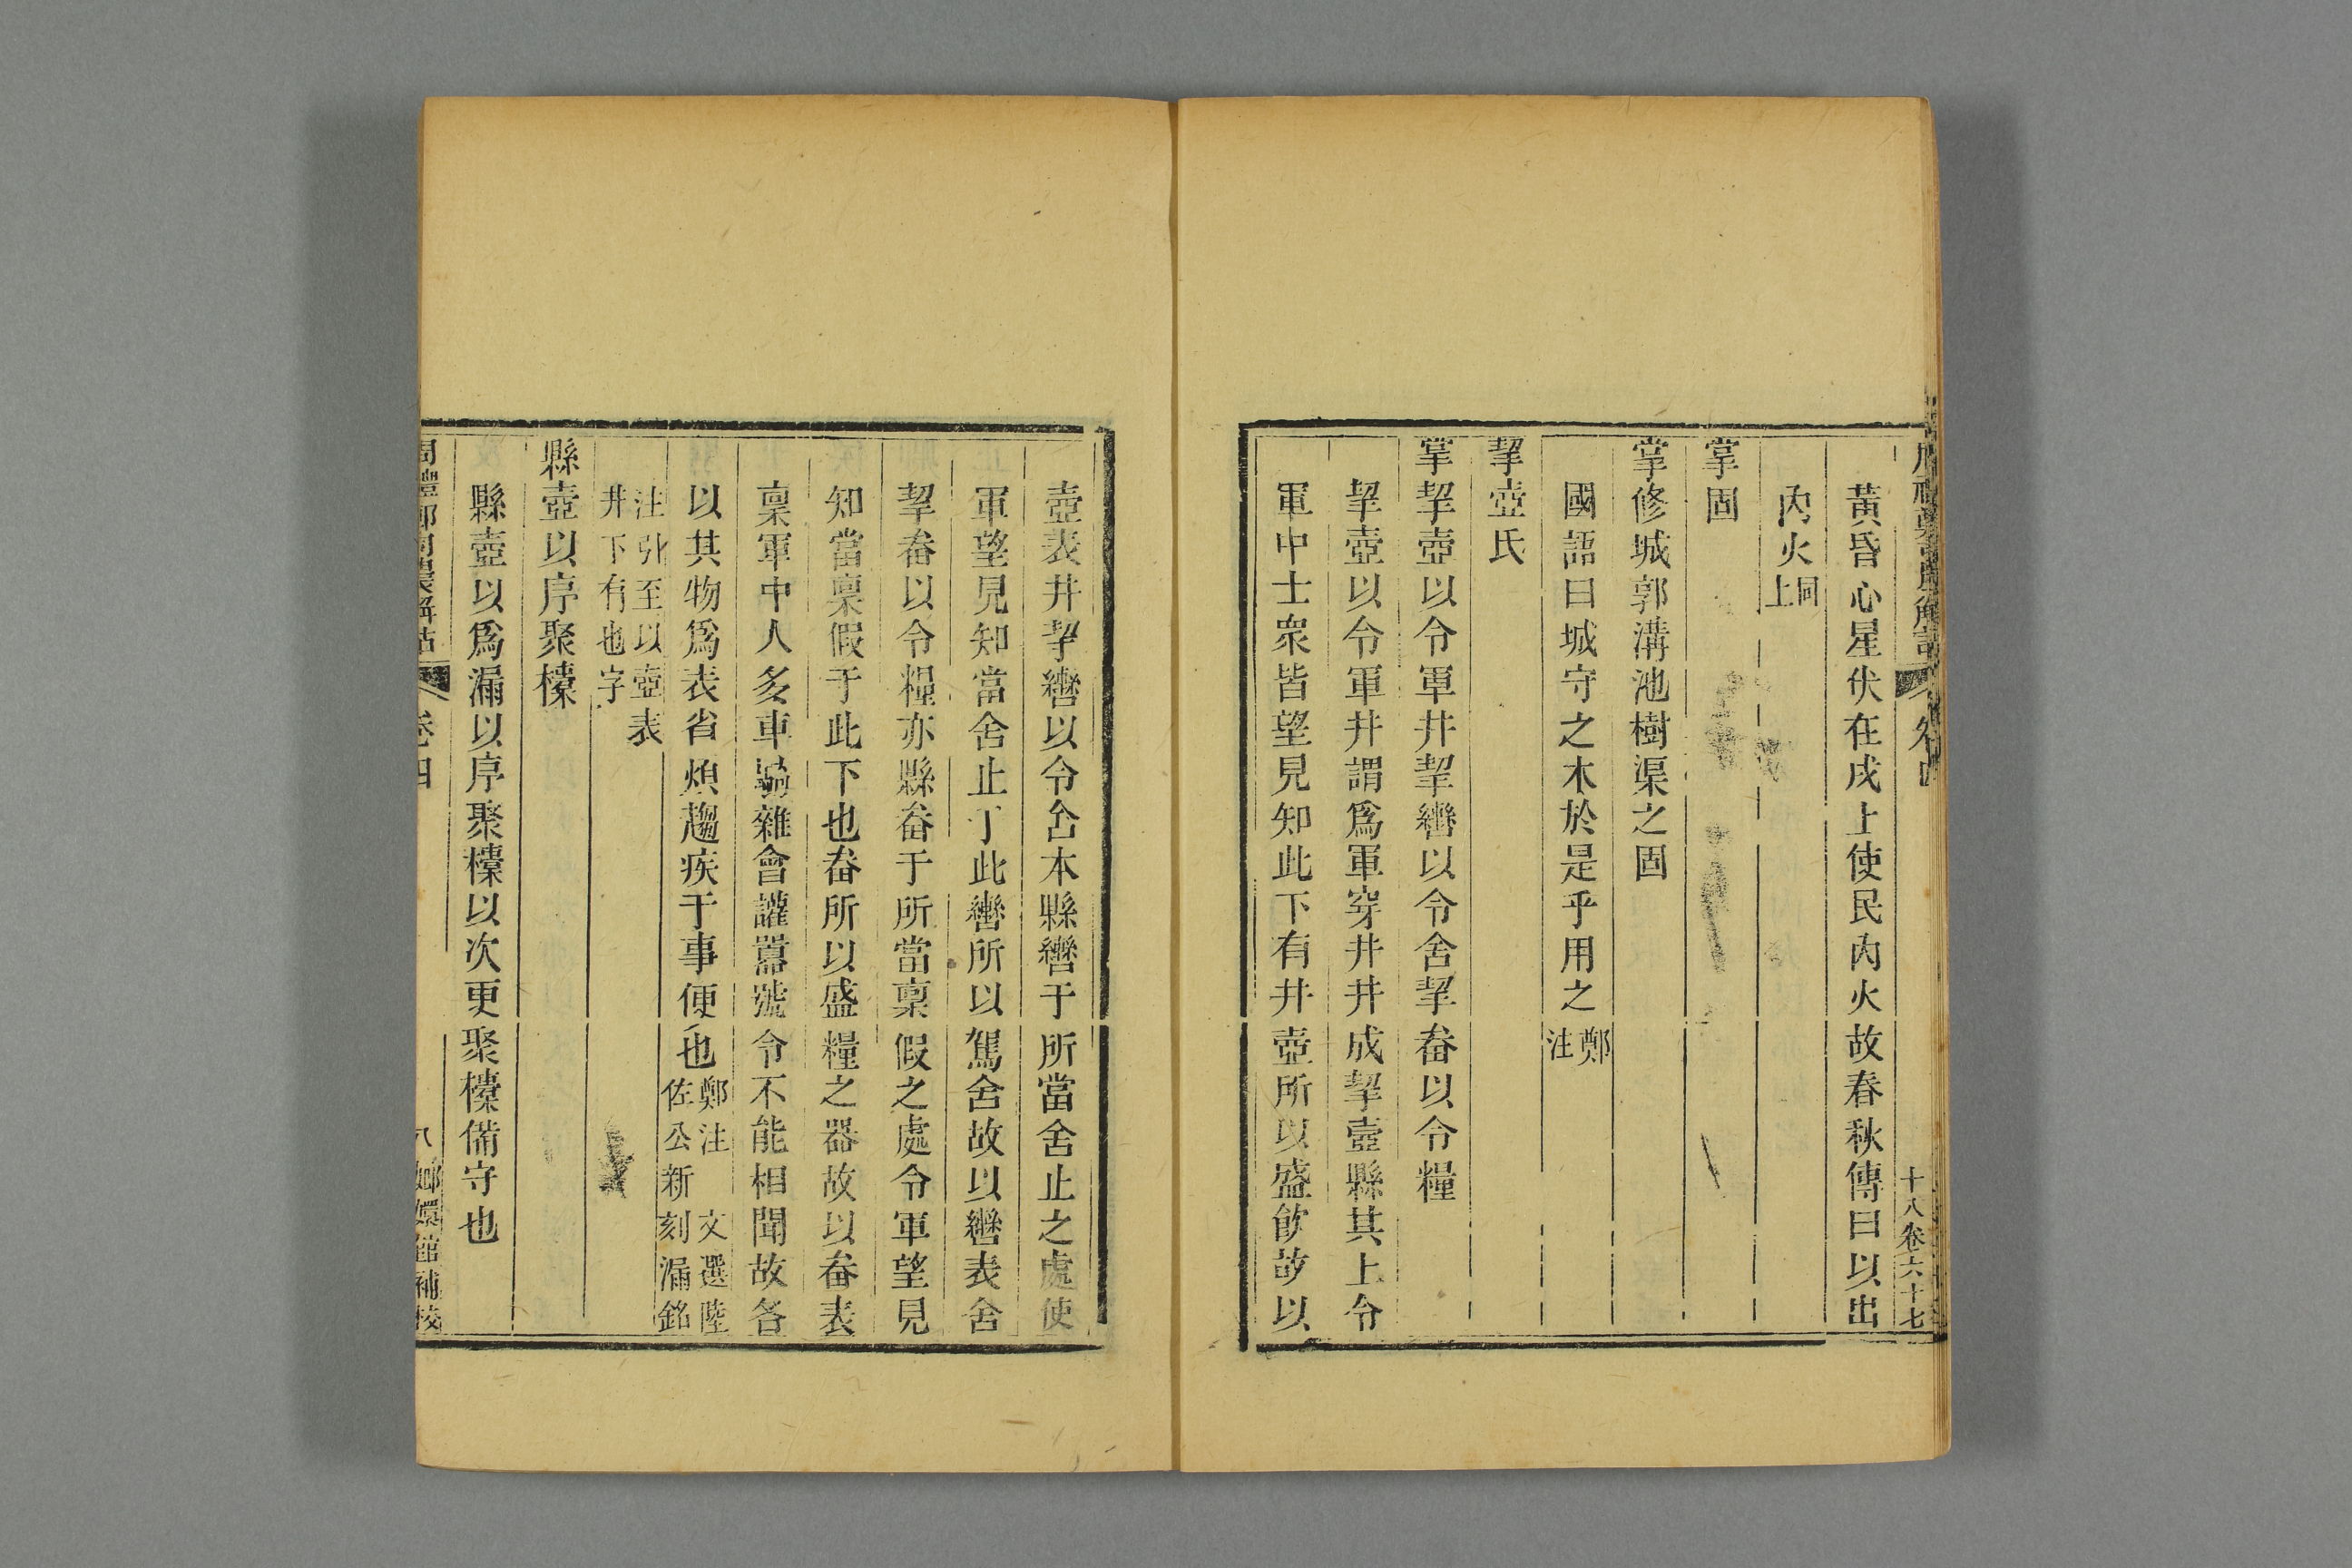 黃昏心星伏在戌上使民內火故春秋傳曰以出
內火同上
掌固
掌修城郭溝池樹渠之固
國語曰城守之木於是乎用之鄭注
挈壺氏
掌挈壺以令軍井挈轡以令舍挈畚以令糧
挈壺以令軍井謂爲軍穿井井成挈壺縣其上令
軍中士衆皆望見知此下有井壺所以盛飮故以
壺表井挈轡以令舍本縣轡于所當舍止之處使
軍望見知當舍止于此轡所以駕舍故以轡表舍
挈畚以令糧亦縣畚于所當稟假之處令軍望見
知當稟假于此下也畚所以盛糧之器故以畚表
稟軍中人多車騎雜會讙嚻號令不能相聞故各
以其物爲表省煩趨疾于事便也鄭注 文選陸佐公新刻漏銘
注引至以壺表井下有也字
縣壺以序聚㯓
縣壺以爲漏以序聚㯓以次更聚㯓備守也
周禮鄭司農解詁 卷四
八 嫏嬛館補校
十八卷六十七